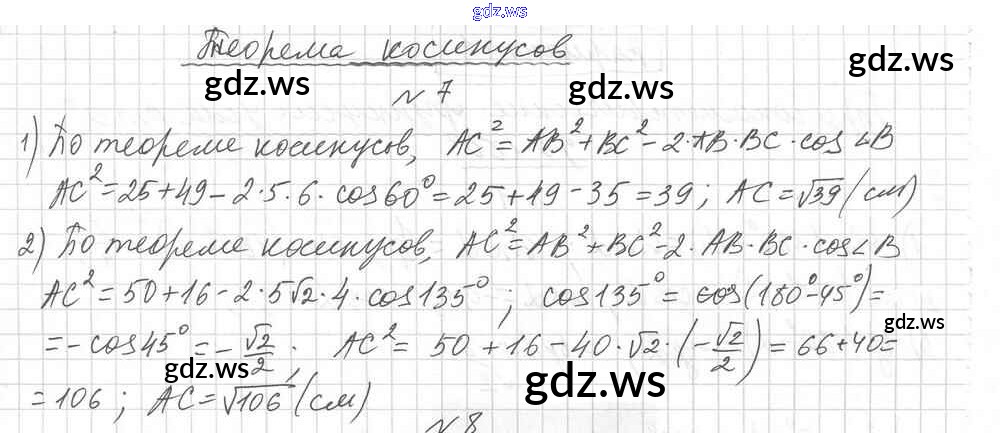 gdz.ws
Теорема косинусов
gdz.ws
gdz.ws
gdz.ws
№ 7
1) По теореме косинусов, AC² = AB² + BC² - 2·AB·BC·cos∠B
AC² = 25 + 49 - 2·5·6·cos60° = 25 + 49 - 35 = 39; AC = √39 (см)
2) По теореме косинусов, AC² = AB² + BC² - 2·AB·BC·cos∠B
AC² = 50 + 16 - 2·5√2·4·cos135°; cos135° = cos(180° - 45°) =
gdz.ws
= - cos45° = - √2/2. AC² = 50 + 16 - 40·√2·(- √2/2) = 66 + 40 =
gdz.ws
gdz.ws
= 106; AC = √106 (см)
№ 8